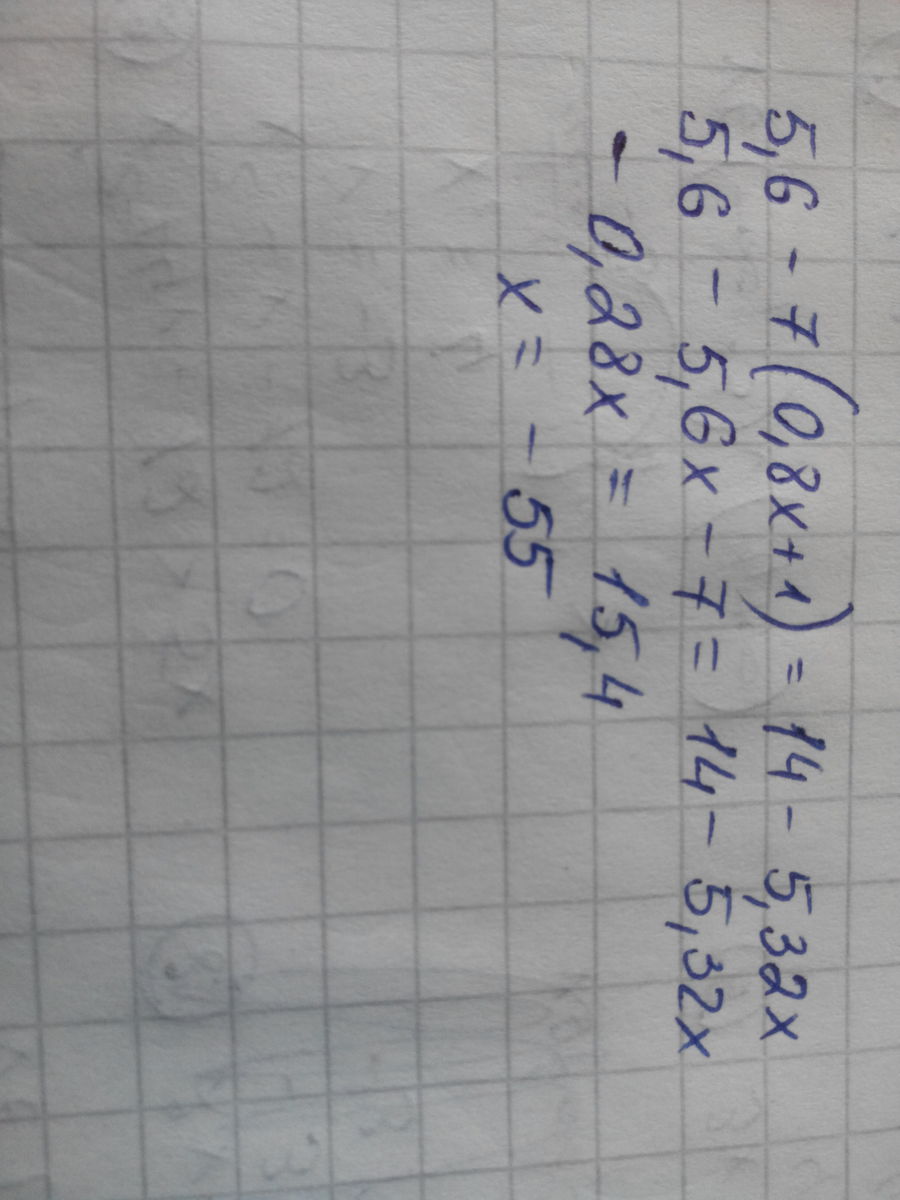 5,6 - 7(0,8x+1) = 14 - 5,32x
5,6 - 5,6x - 7 = 14 - 5,32x
- 0,28x = 15,4
x = - 55